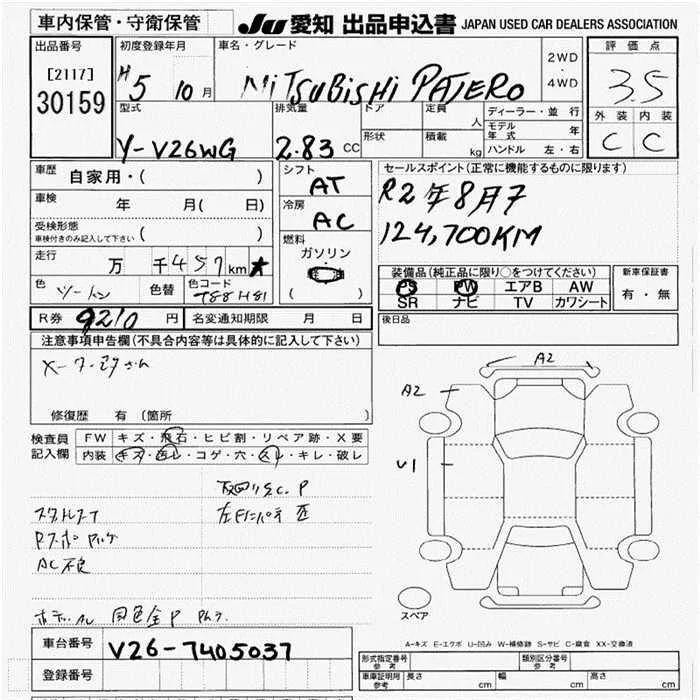 車内保管・守衛保管
JU 愛知 出品申込書 JAPAN USED CAR DEALERS ASSOCIATION
出品番号
[2117]
30159
初度登録年月
H5 10月
車名・グレード
MITSUBISHI PAJERO
2WD
・
4WD
評価点
3.5
外装 内装
C C
型式
Y-V26WG
排気量
2.83 CC
ドア
形状
定員 人
積載 kg
ディーラー・並行
モデル年式 年
ハンドル 左・右
車歴 自家用・( )
車検 年 月( 日)
受検形態
車検付きのみ記入して下さい ( )
走行 万 千457km
色 ツートン
色替
色コード
シフト
AT
冷房
AC
燃料
ガソリン
( )
セールスポイント(正常に機能するものに限ります)
R2年8月7
124,700KM
装備品(純正品に限り○をつけてください)
PS PW エアB AW
SR ナビ TV カワシート
新車保証書
有・無
R券 9210 円
名変通知期限 月 日
後日品
注意事項申告欄(不具合内容等は具体的に記入して下さい)
修復歴 有 (箇所 )
検査員
記入欄
FW キズ・飛石・ヒビ割・リペア跡・X要
内装 キズ・汚レ・コゲ・穴・スレ・キレ・破レ
AC不良
A2
A2
U1
スペア
A-キズ E-エクボ U-凹み W-補修跡 S-サビ C-腐食 XX-交換済
車台番号 V26-7405037
登録番号
形式指定番号
参考
類別区分番号
参考
車庫証明用
参考
長さ cm 幅 cm 高さ cm